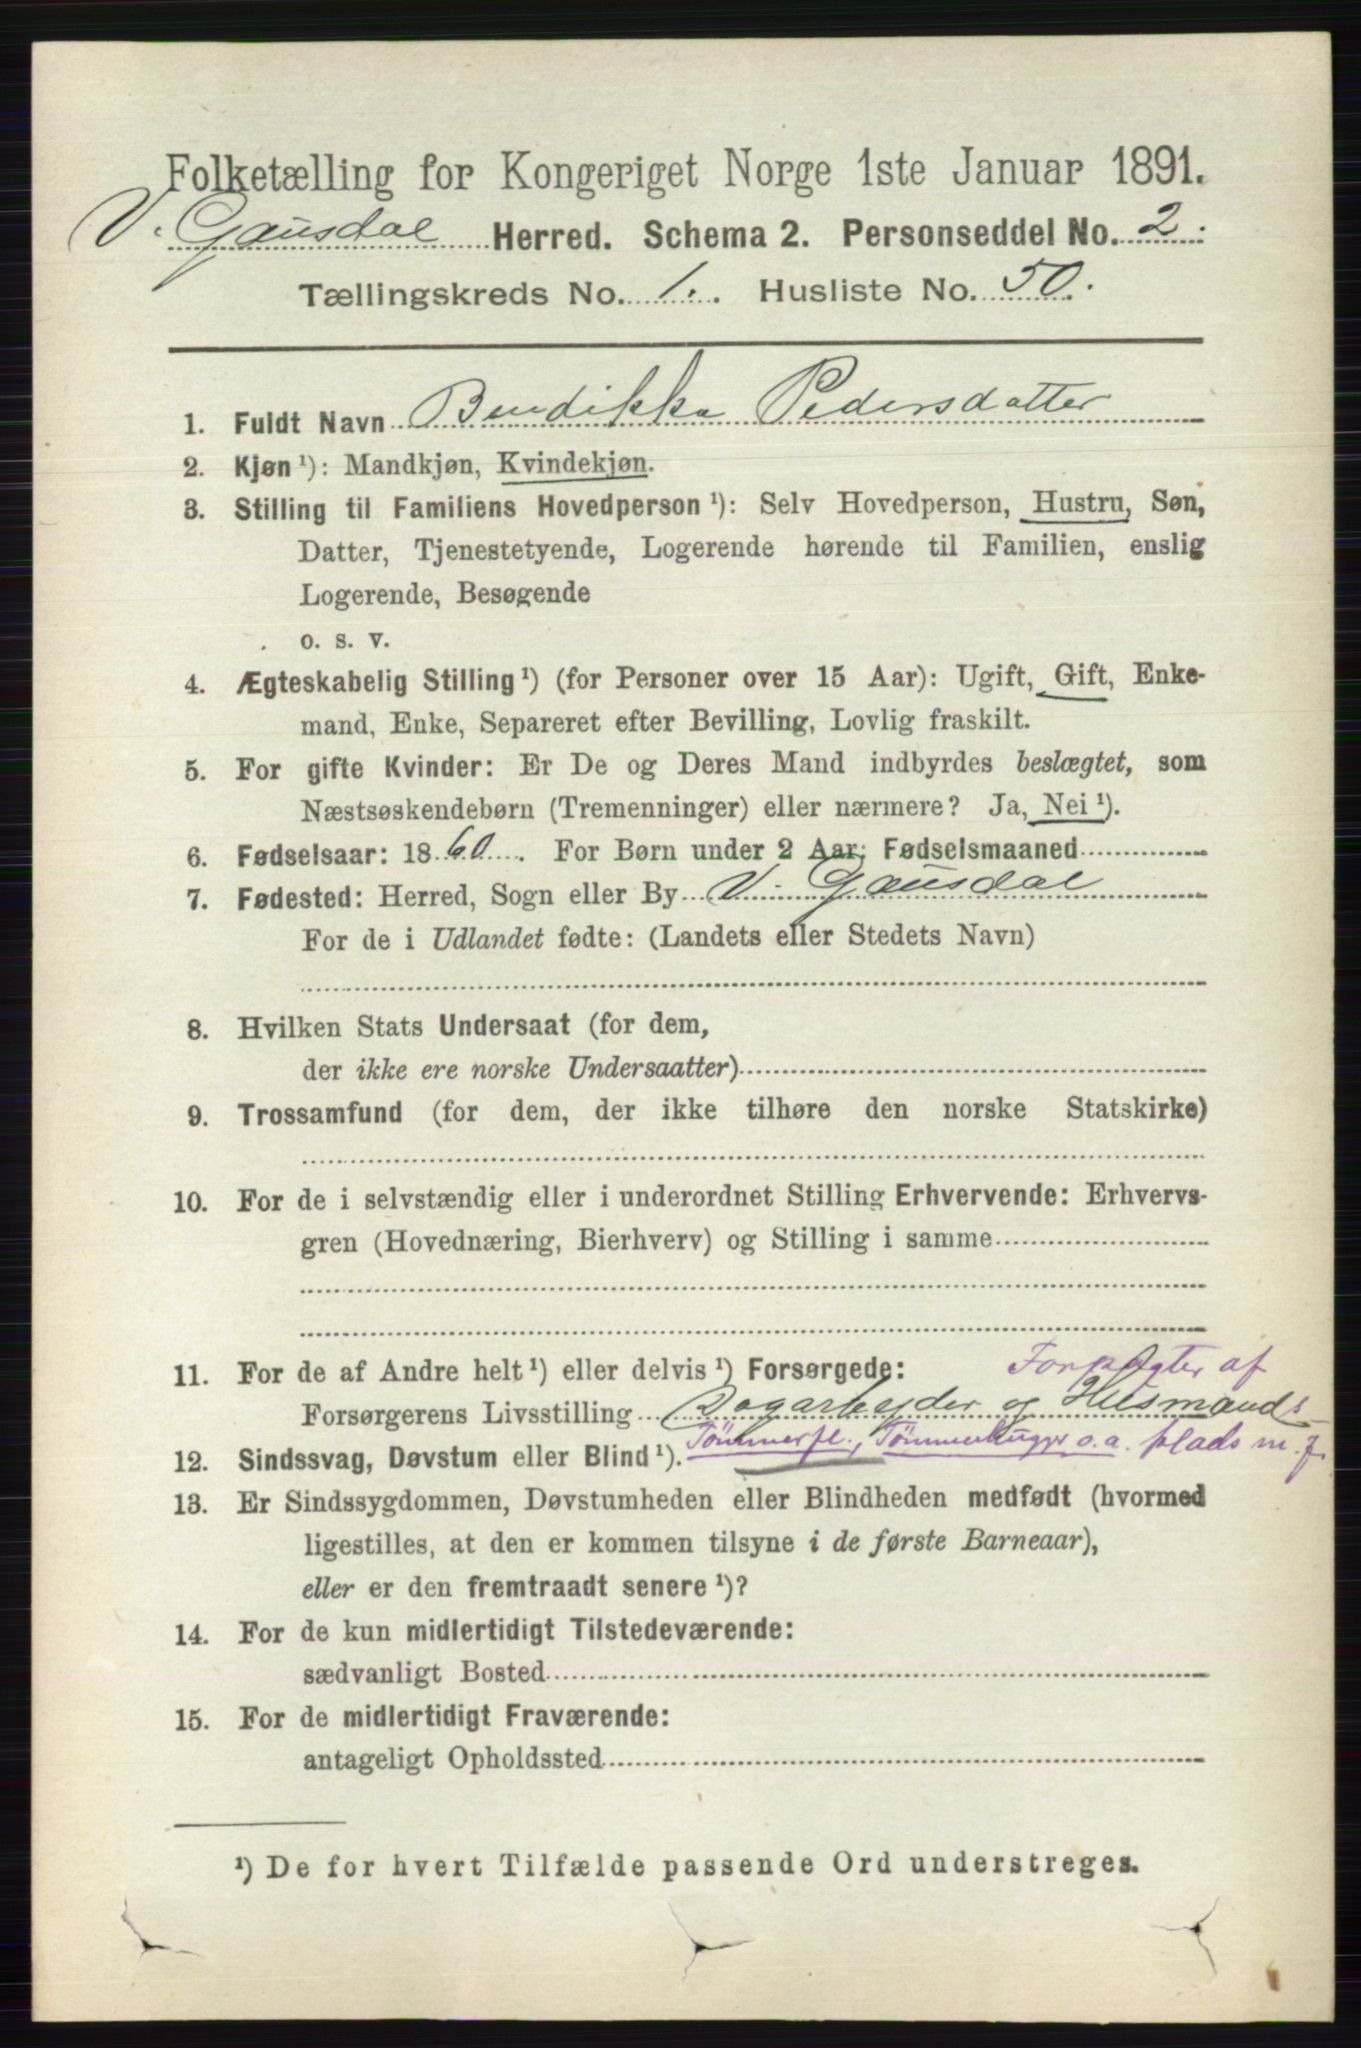 Folketælling for Kongeriget Norge 1ste Januar 1891.
V. Gausdal Herred. Schema 2. Personseddel No. 2.
Tællingskreds No. 1. Husliste No. 50.
1. Fuldt Navn Bendikka Pedersdatter
2. Kjøn ¹): Mandkjøn, Kvindekjøn.
3. Stilling til Familiens Hovedperson ¹): Selv Hovedperson, Hustru, Søn,
Datter, Tjenestetyende, Logerende hørende til Familien, enslig
Logerende, Besøgende
o. s. v.
4. Ægteskabelig Stilling ¹) (for Personer over 15 Aar): Ugift, Gift, Enke-
mand, Enke, Separeret efter Bevilling, Lovlig fraskilt.
5. For gifte Kvinder: Er De og Deres Mand indbyrdes beslægtet, som
Næstsøskendebørn (Tremenninger) eller nærmere? Ja, Nei ¹).
6. Fødselsaar: 1860. For Børn under 2 Aar: Fødselsmaaned
7. Fødested: Herred, Sogn eller By V. Gausdal
For de i Udlandet fødte: (Landets eller Stedets Navn)
8. Hvilken Stats Undersaat (for dem,
der ikke ere norske Undersaatter)
9. Trossamfund (for dem, der ikke tilhøre den norske Statskirke)
10. For de i selvstændig eller i underordnet Stilling Erhvervende: Erhvervs-
gren (Hovednæring, Bierhverv) og Stilling i samme
11. For de af Andre helt ¹) eller delvis ¹) Forsørgede: Forpagter af
Forsørgerens Livsstilling Dagarbeyder og Husmands-
12. Sindssvag, Døvstum eller Blind ¹). Tömmerfl., Tömmerhugger o.a. plads m. j.
13. Er Sindssygdommen, Døvstumheden eller Blindheden medfødt (hvormed
ligestilles, at den er kommen tilsyne i de første Barneaar),
eller er den fremtraadt senere ¹)?
14. For de kun midlertidigt Tilstedeværende:
sædvanligt Bosted
15. For de midlertidigt Fraværende:
antageligt Opholdssted
¹) De for hvert Tilfælde passende Ord understreges.